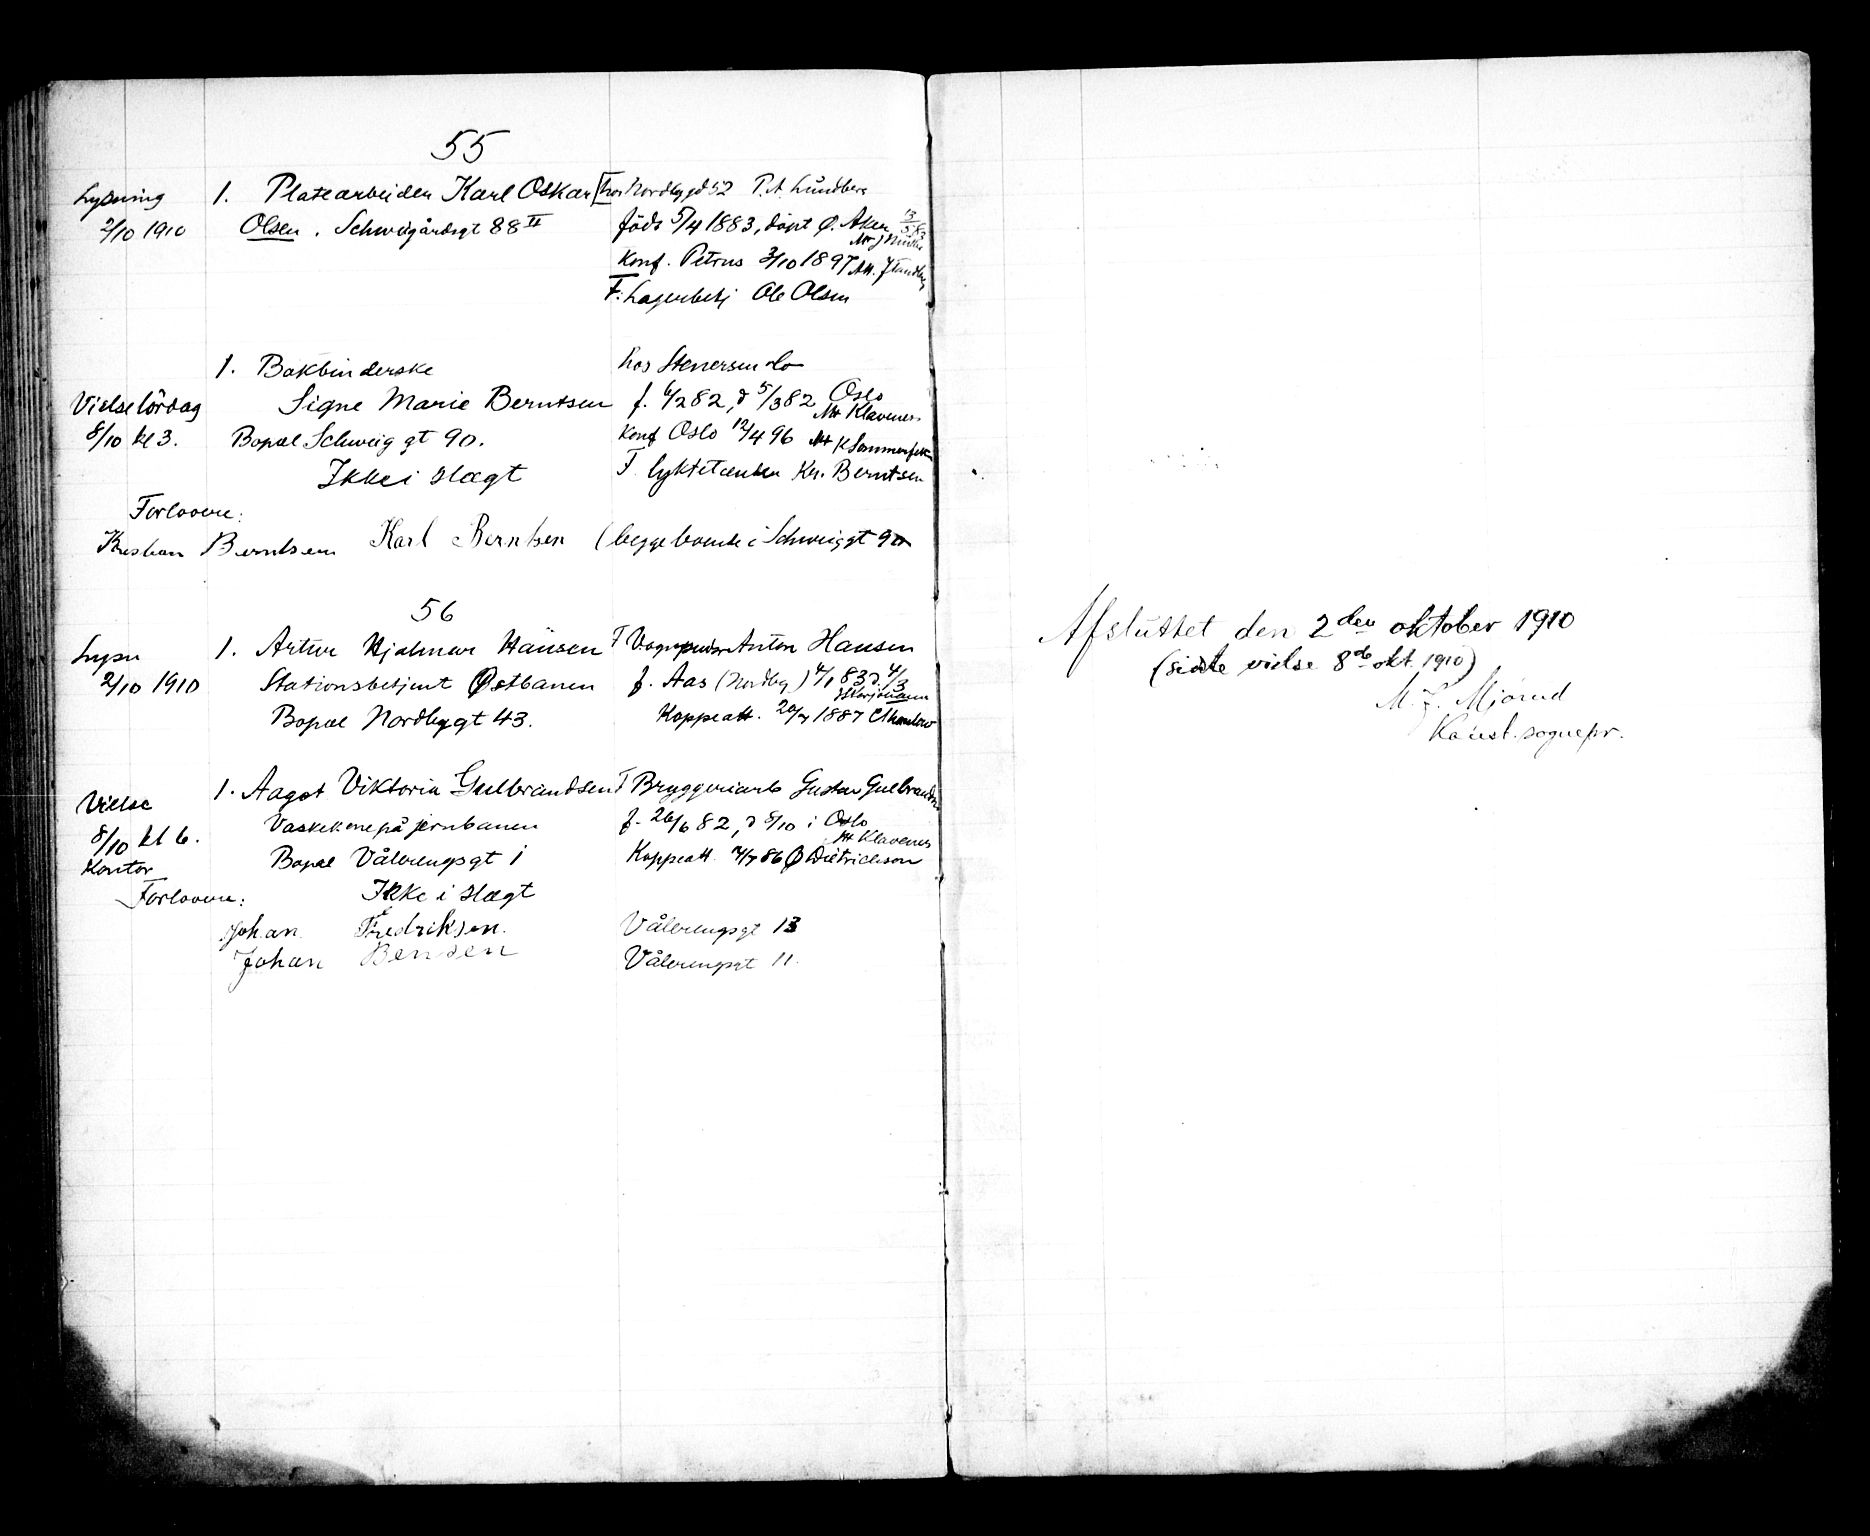 55
Lysning 1. Platearbeider Karl Oskar hos Nordbygd 52 P. A. Lundberg
2/10 1910 Olsen. Schweigårdsgt 88 II föds 5/4 1883, döpt Ø. Aker 13/5 83
Konf. Petrus 3/10 1897 Att.
F: Lagerbetj Ole Olsen
1. Bokbinderske hos Stenersen do
Vielse lördag Signe Marie Berntsen f. 6/2 82, d 5/3 82 Oslo
Att Klavenes
8/10 kl 3. Bopæl Schweig gt 90. Konf Oslo 12/4 96 Att K Sommerfelt
Ikke i slægt F. lyktetænder Kr. Berntsen
Forlovere:
Kristian Berntsen Karl Berntsen (begge boende i Schweig gt 90
56
Lysn 1. Artur Hjalmar Hansen F Vognpudser Anton Hansen
2/10 1910 Stationsbetjent Østbanen f. Aas (Nordby) 4/1 83 d. 4/3
Bopæl Nordbygt 43. Koppeatt. 20/7 1887
1. Aagot Viktoria Gulbrandsen F Bryggeriarb Gustav Gulbrandsen
Vielse
8/10 kl 6. Vaskekone på jernbanen f. 26/6 82, d 8/10 i Oslo
Att Klavenes
Kontor Bopæl Vålerengsgt 1 Koppeatt. 7/7 86 Ø Dietrichson
Forlovere: Ikke i slægt
Johan Fredriksen. Vålerengsgt 13
Johan Bensen Vålerengsgt 11.
Afsluttet den 2den oktober 1910
(sidste vielse 8de okt. 1910)
M. J. Mjörud
Konst. sognepr.